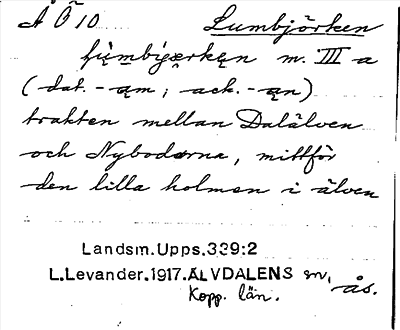 Å Ö 10 Lumbjörken
m. III a
(dat. -ąm; ack. -ąn)
trakten mellan Dalälven
och Nybodarna, mittför
den lilla holmen i älven
Landsm.Upps.339:2
L.Levander.1917.ÄLVDALENS sn, ås.
Kopp. län.